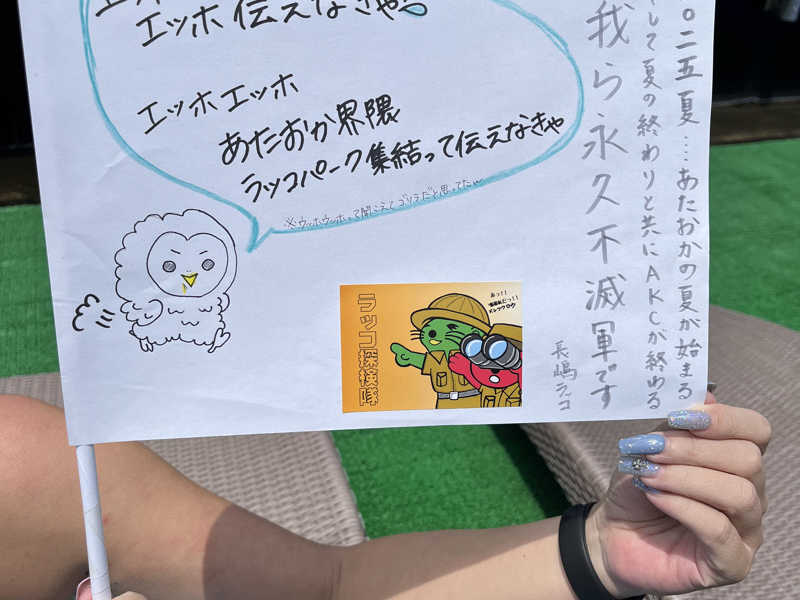 エッホ伝えなきゃっ
エッホエッホ
あたおか界隈
ラッコパーク集結って伝えなきゃ
※ウッホウッホって聞こえてゴリラだと思ってたw
二五夏…あたおかの夏が始まる
して夏の終わりと共にAKCが終わる
我ら永久不滅軍です
長嶋ラッコ
ラッコ探検隊
あっ!!